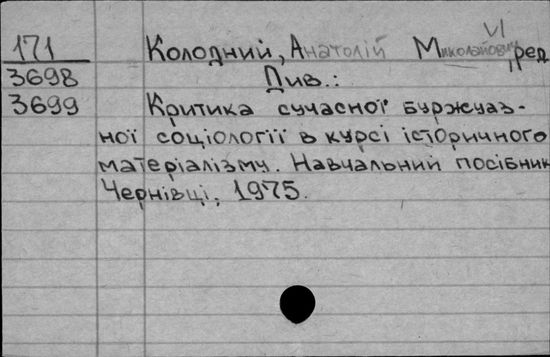 VI
171 Колодний, Анатолій Миколайович, ред
3698 Див.:
3699 Критика сучасної буржуаз-
ної соціології в курсі історичного
матеріалізму. Навчальний посібник
Чернівці, 1975.